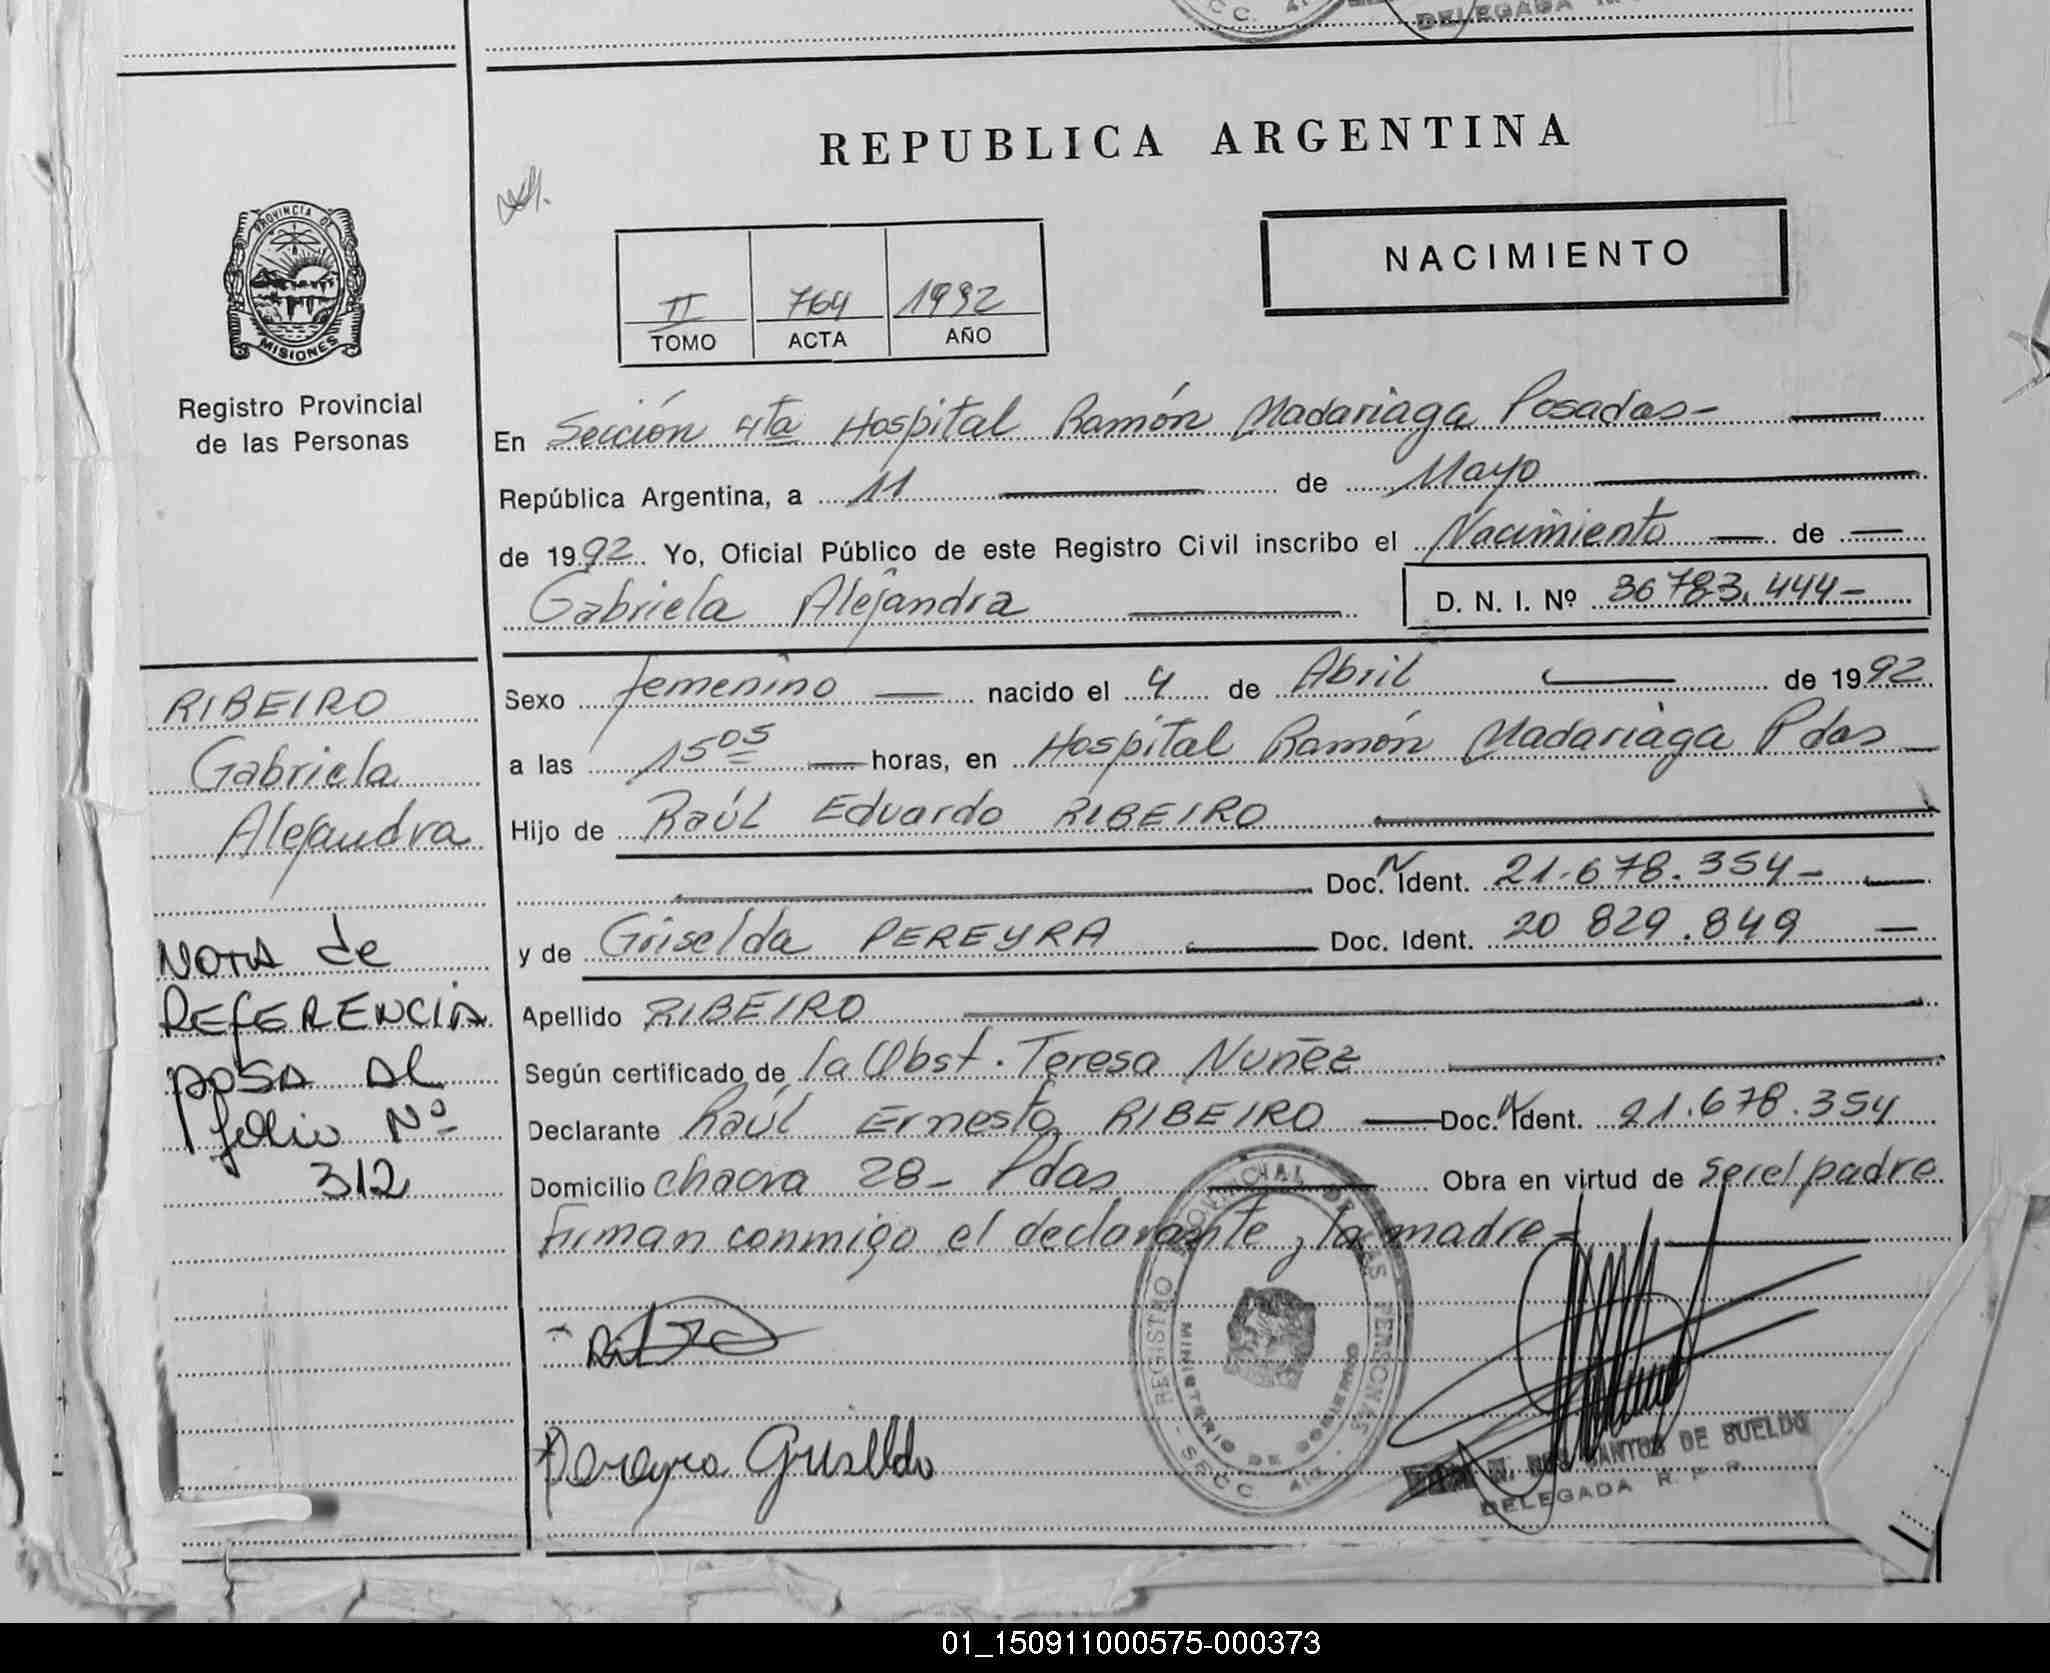 DELEGADA
REPUBLICA ARGENTINA
NACIMIENTO
II 764 1992
TOMO ACTA AÑO
PROVINCIA DE
MISIONES
Registro Provincial
de las Personas
En Sección 4ta Hospital Ramón Madariaga Posadas-
República Argentina, a 11 de Mayo
de 1992. Yo, Oficial Público de este Registro Civil inscribo el Nacimiento de
Gabriela Alejandra D. N. I. Nº 36783.444-
Sexo femenino nacido el 4 de Abril de 1992
a las 15 05 horas, en Hospital Ramón Madariaga Pdas
Hijo de Raúl Eduardo RIBEIRO
Doc. N Ident. 21.678.354-
y de Griselda PEREYRA Doc. Ident. 20 829.849
Apellido RIBEIRO
Según certificado de la Obst. Teresa Nuñez
Declarante Raúl Ernesto RIBEIRO Doc. N Ident. 21.678.354
Domicilio chacra 28- Pdas Obra en virtud de ser el padre
Firman conmigo el declarante, la madre=
RIBEIRO
Gabriela
Alejandra
NOTA de
REFERENCIA
PASA AL
folio Nº
312
Pereyra Griselda
REGISTRO PROVINCIAL DE LAS PERSONAS
MINISTERIO DE GOBIERNO
SECC. 4ta
SANTOS DE SUELDO
DELEGADA R. P. P.
01_150911000575-000373